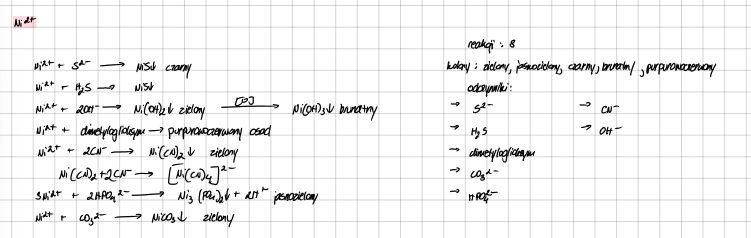 Ni²⁺
Ni²⁺ + S²⁻ → NiS↓ czarny
Ni²⁺ + H₂S → NiS↓
Ni²⁺ + 2OH⁻ → Ni(OH)₂↓ zielony —[O]→ Ni(OH)₃↓ brunatny
Ni²⁺ + dimetyloglioksym → purpurowoczerwony osad
Ni²⁺ + 2CN⁻ → Ni(CN)₂↓ zielony
Ni(CN)₂ + 2CN⁻ → [Ni(CN)₄]²⁻
3Ni²⁺ + 2HPO₄²⁻ → Ni₃(PO₄)₂↓ + 2H⁺ jasnozielony
Ni²⁺ + CO₃²⁻ → NiCO₃↓ zielony
reakcji : 8
kolory : zielony, jasnozielony, czarny, brunatny, purpurowoczerwony
odczynniki:
→ S²⁻
→ H₂S
→ dimetyloglioksym
→ CO₃²⁻
→ HPO₄²⁻
→ CN⁻
→ OH⁻